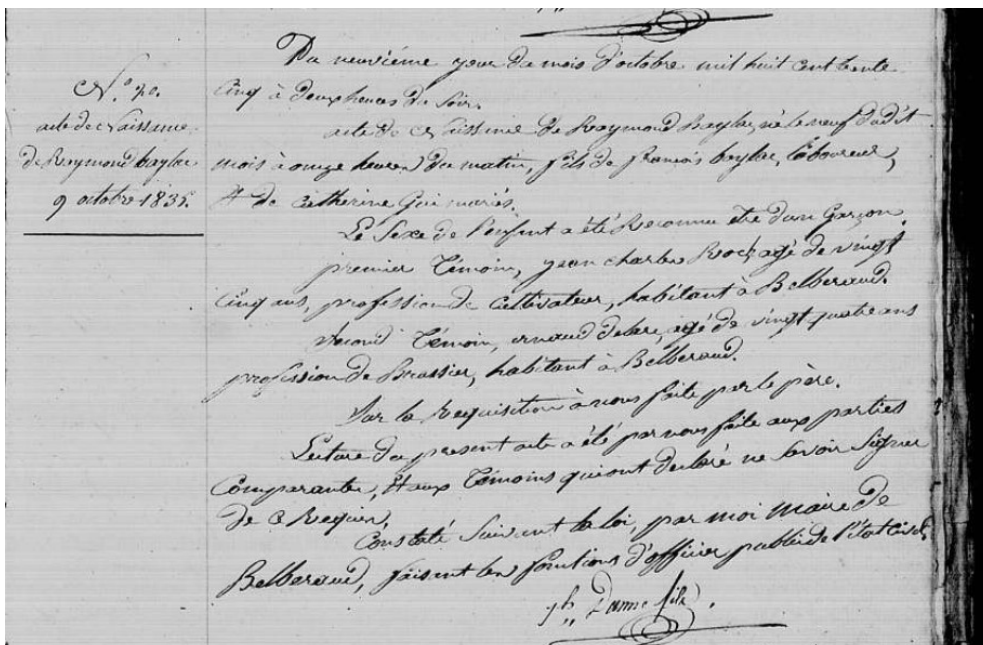 N.º 20.
acte de Naissance
de Raymond baylac
9 octobre 1835.
Du neuvième jour du mois d'octobre mil huit cent trente
Cinq à deux heures du Soir.
acte de Naissance de Raymond Baylac, né le neuf dudit
mois à onze heures du matin, fils de françois baylac, laboureur,
& de Catherine Gui mariés.
Le Sexe de l'enfant a été Reconnu être d'un Garçon
premier Témoin, jean charles Roch agé de vingt
Cinq ans, profession de Cultivateur, habitant à Belberaud.
Second Témoin, arnaud agé de vingt quatre ans
profession de Brassier, habitant à Belberaud.
Sur la Requisition à nous faite par le père.
Lecture du present acte a été par nous faite aux parties
Comparantes, & aux Témoins qui ont declaré ne Savoir Signer
de ce Requis.
Constaté Suivant la loi, par moi Maire de
Belberaud, faisant les fonctions d'officier public de l'état Civil,
fils